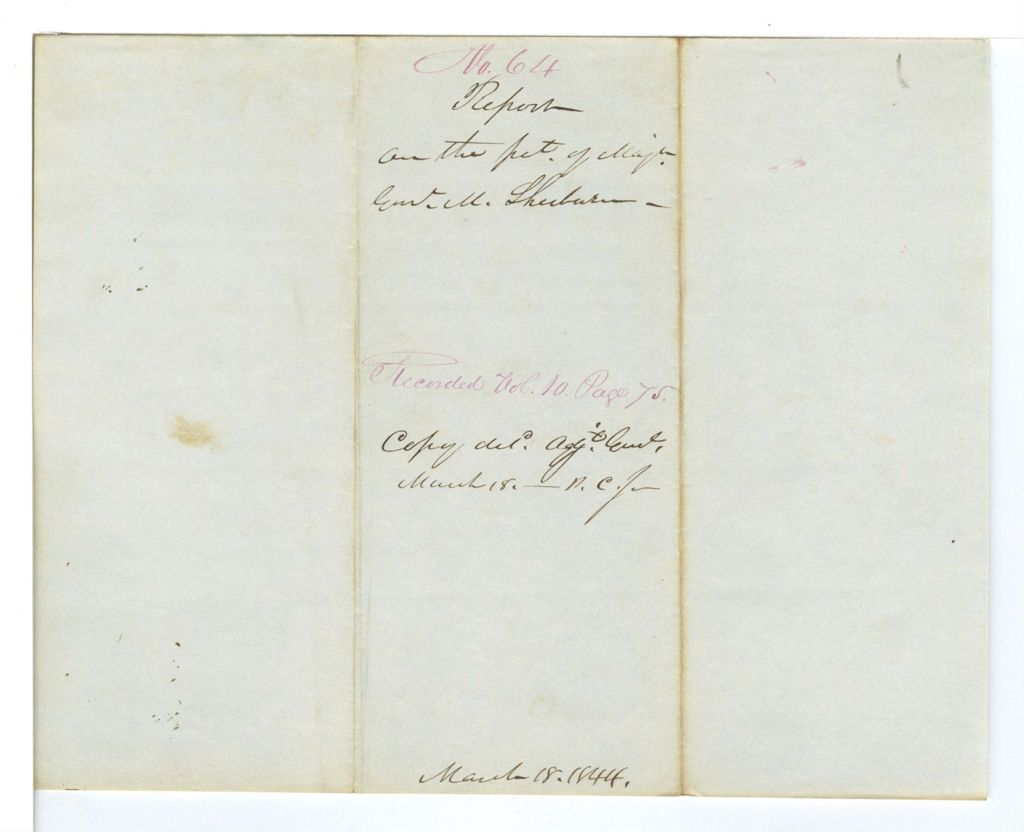 No. 64
Report
on the pet. of Majr.
Genl. M. Sherburn -
Recorded Vol. 10. Page 75.
Copy deld. Adjt. Genl.
March 18. —
March 18. 1844.